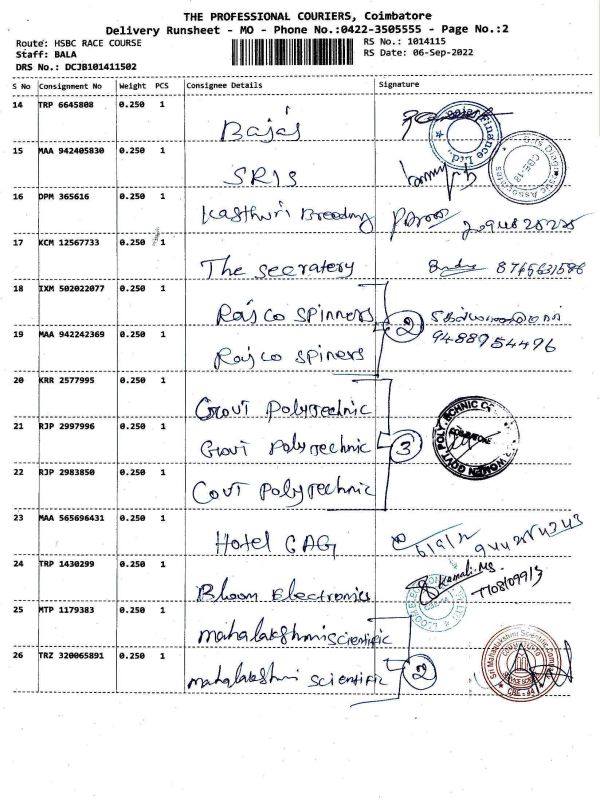 THE PROFESSIONAL COURIERS, Coimbatore
Delivery Runsheet - MO - Phone No.:0422-3505555 - Page No.:2
Route: HSBC RACE COURSE
RS No.: 1014115
Staff: BALA
RS Date: 06-Sep-2022
DRS No.: DCJB101411502
S No Consignment No Weight PCS Consignee Details Signature
14 TRP 6645808 0.250 1 Bajaj
15 MAA 942405830 0.250 1 SRIS
16 DPM 365616 0.250 1 Kasthuri Breeding
17 KCM 12567733 0.250 1 The secratery
18 IXM 502022077 0.250 1 Rajco Spinners
2
19 MAA 942242369 0.250 1 Rajco Spiners 9488954496
20 KRR 2577995 0.250 1 Govt Polytechnic
21 RJP 2997996 0.250 1 Govt Polytechnic 3
22 RJP 2983850 0.250 1 Govt Polytechnic
23 MAA 565696431 0.250 1 Hotel GAG
24 TRP 1430299 0.250 1 Bloom Electronics Kamali.MS
25 MTP 1179383 0.250 1 mahalakshmi scientific
26 TRZ 320065891 0.250 1 mahalakshmi scientific 2